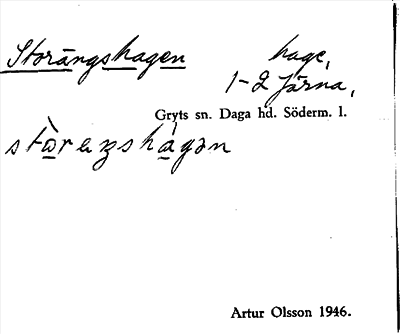 Storängshagen hage,
1-2 Järna,
Gryts sn. Daga hd. Söderm. l.
Artur Olsson 1946.